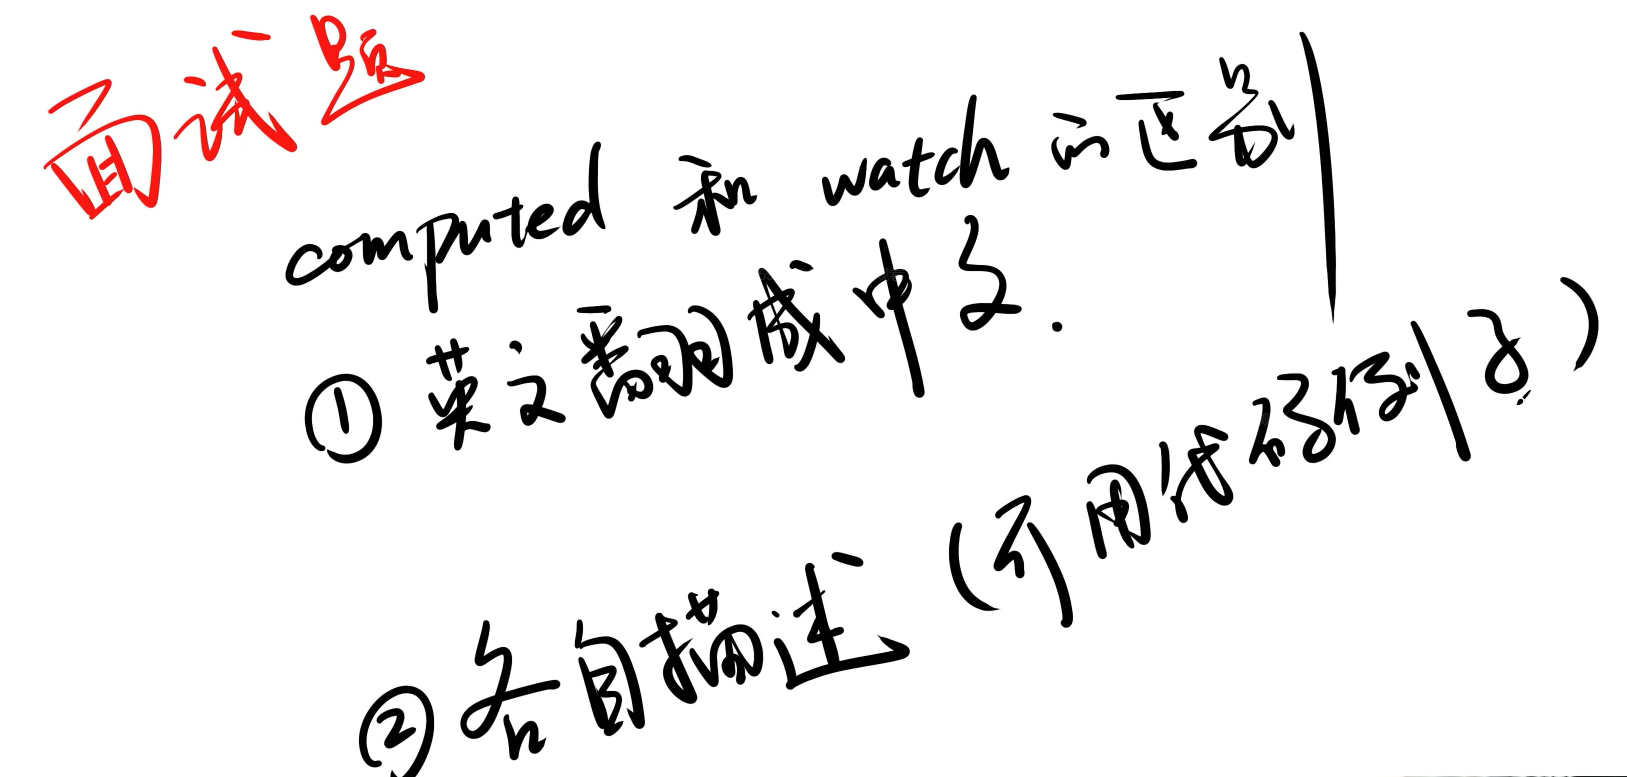 面试题
computed 和 watch 的区别
① 英文翻成中文.
② 各自描述 (可用代码例子)